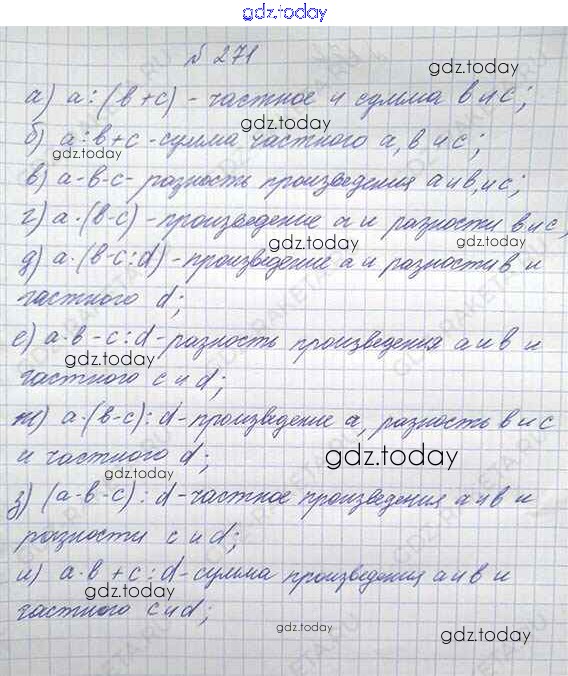 gdz.today
№ 271
gdz.today
а) а : (в + с) - частное и сумма в и с;
gdz.today
б) а : в + с - сумма частного а, в и с;
gdz.today
в) а · в - с - разность произведения а и в, и с;
г) а · (в - с) - произведение а и разности в и с;
gdz.today gdz.today
д) а · (в - с : d) - произведение а и разности в и
частного d;
е) а · в - с : d - разность произведения а и в и
gdz.today
частного с и d;
ж) а · (в - с) : d - произведение а, разность в и с
и частного d;
gdz.today
gdz.today
з) (а · в - с) : d - частное произведения а и в и
разности с и d;
и) а · в + с : d - сумма произведения а и в и
gdz.today
частного с и d;
gdz.today
gdz.today